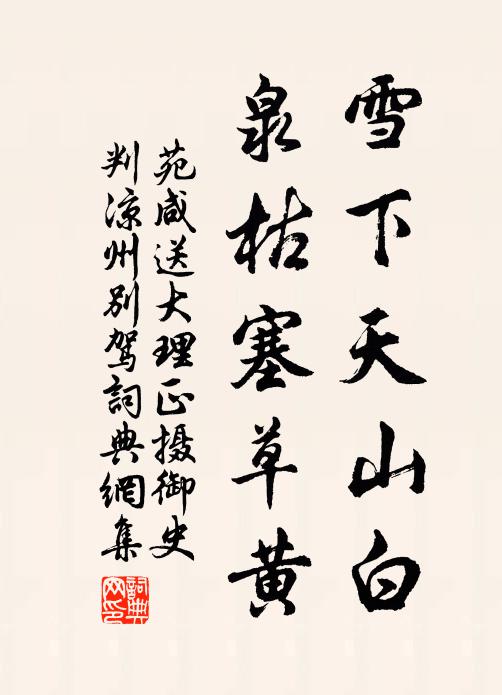 雪下天山白
泉枯塞草黄
苑咸送大理正摄御史
判凉州别驾詞典網集
詞典网印